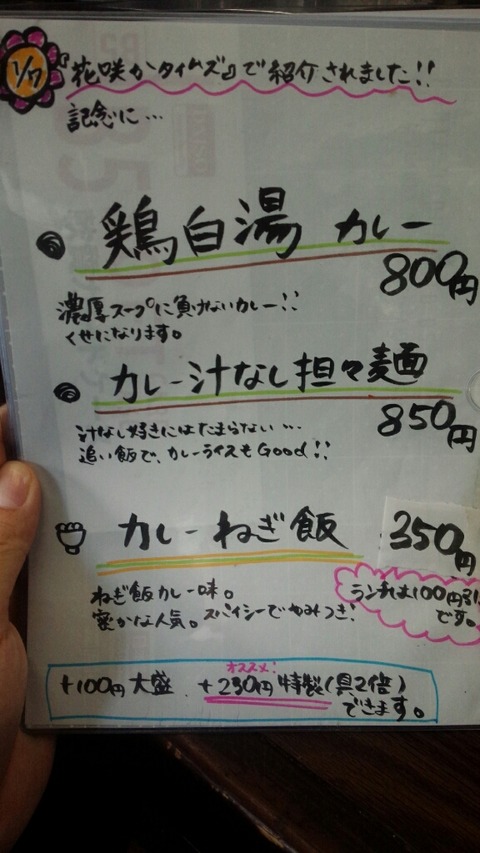 1/7
『花咲かタイムズ』で紹介されました!!
記念に…
鶏白湯 カレー
800円
濃厚スープに負けないカレー!!
くせになります。
カレー汁なし担々麺
850円
汁なし好きにはたまらない…
追い飯で、カレーライスもGood!!
カレーねぎ飯
350円
ランチは100円引
です。
ねぎ飯カレー味。
密かな人気。スパイシーでやみつき!
オススメ!
+100円大盛 +230円特製(具2倍)
できます。